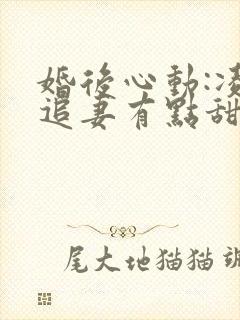 婚後心動:凌
追妻有點甜
尾大地猫猫